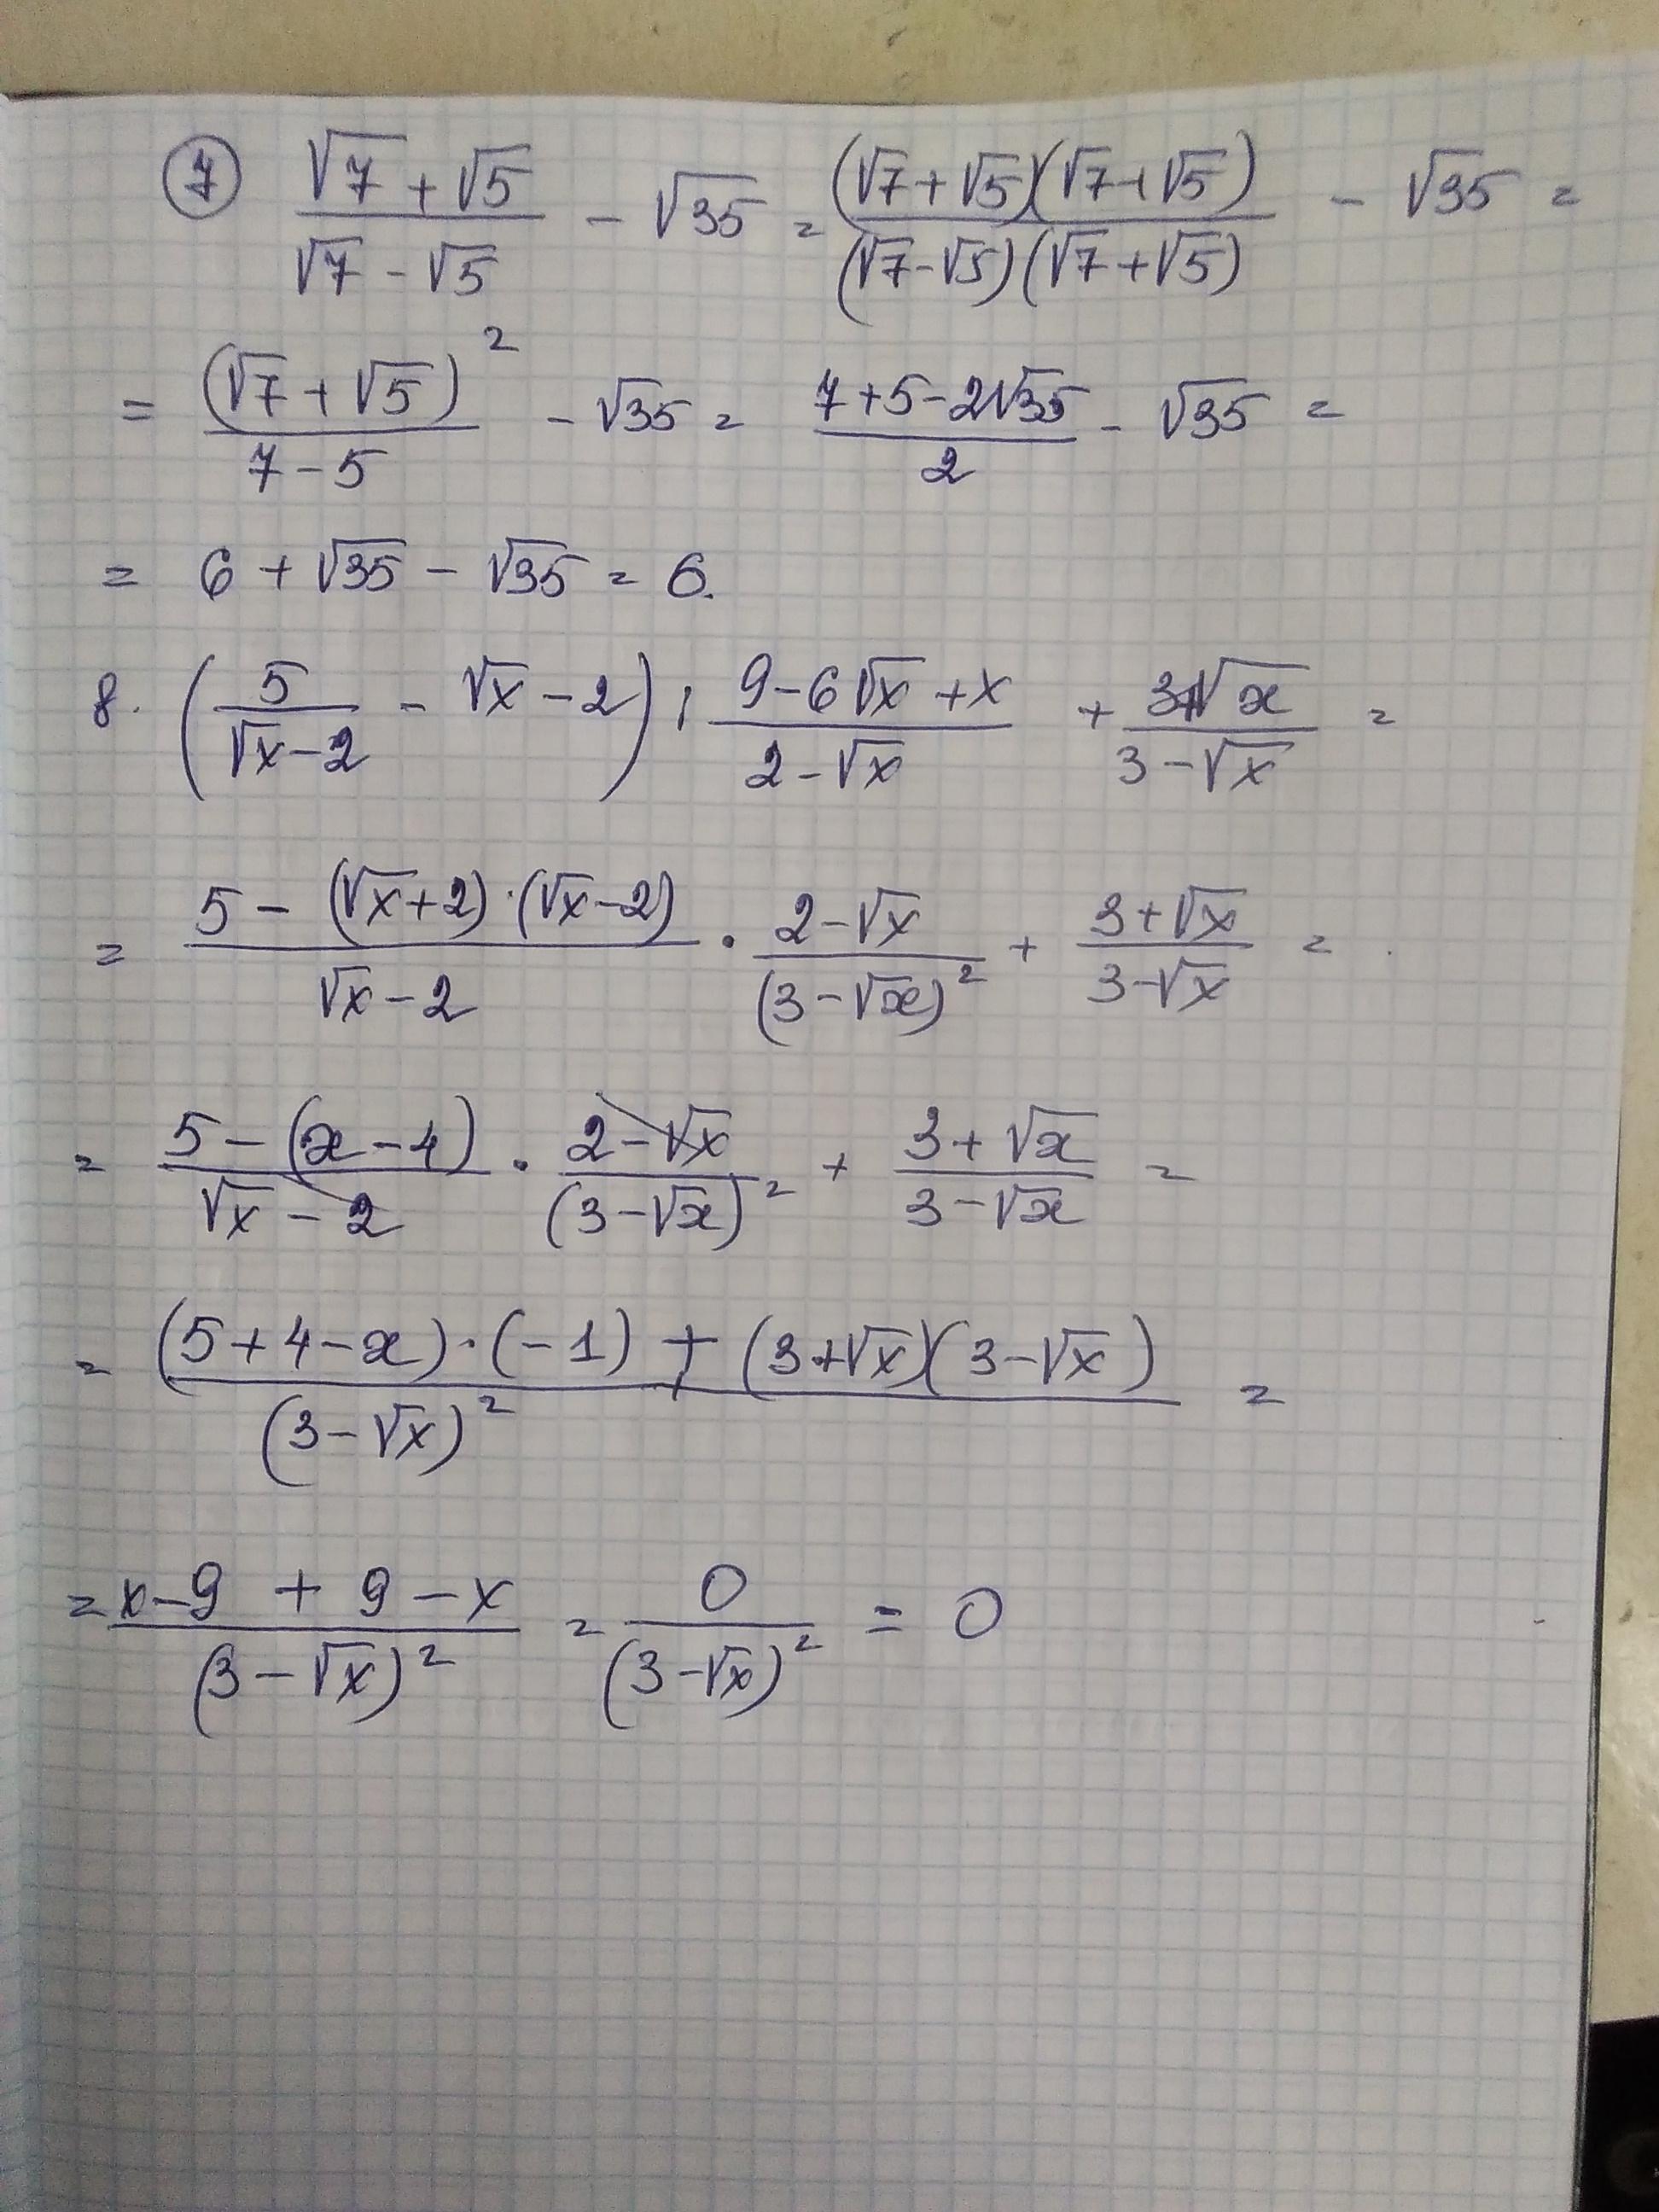 ⑦ (√7 + √5)/(√7 - √5) - √35 = ((√7 + √5)(√7 + √5))/((√7 - √5)(√7 + √5)) - √35 =
= (√7 + √5)²/(7 - 5) - √35 = (7 + 5 - 2√35)/2 - √35 =
= 6 + √35 - √35 = 6.
8. (5/(√x - 2) - √x - 2) : (9 - 6√x + x)/(2 - √x) + (3+√x)/(3 - √x) =
= (5 - (√x + 2)·(√x - 2))/(√x - 2) · (2 - √x)/(3 - √x)² + (3 + √x)/(3 - √x) =
= (5 - (x - 4))/(√x - 2) · (2 - √x)/(3 - √x)² + (3 + √x)/(3 - √x) =
= ((5 + 4 - x)·(-1) + (3 + √x)(3 - √x))/(3 - √x)² =
= (x - 9 + 9 - x)/(3 - √x)² = 0/(3 - √x)² = 0